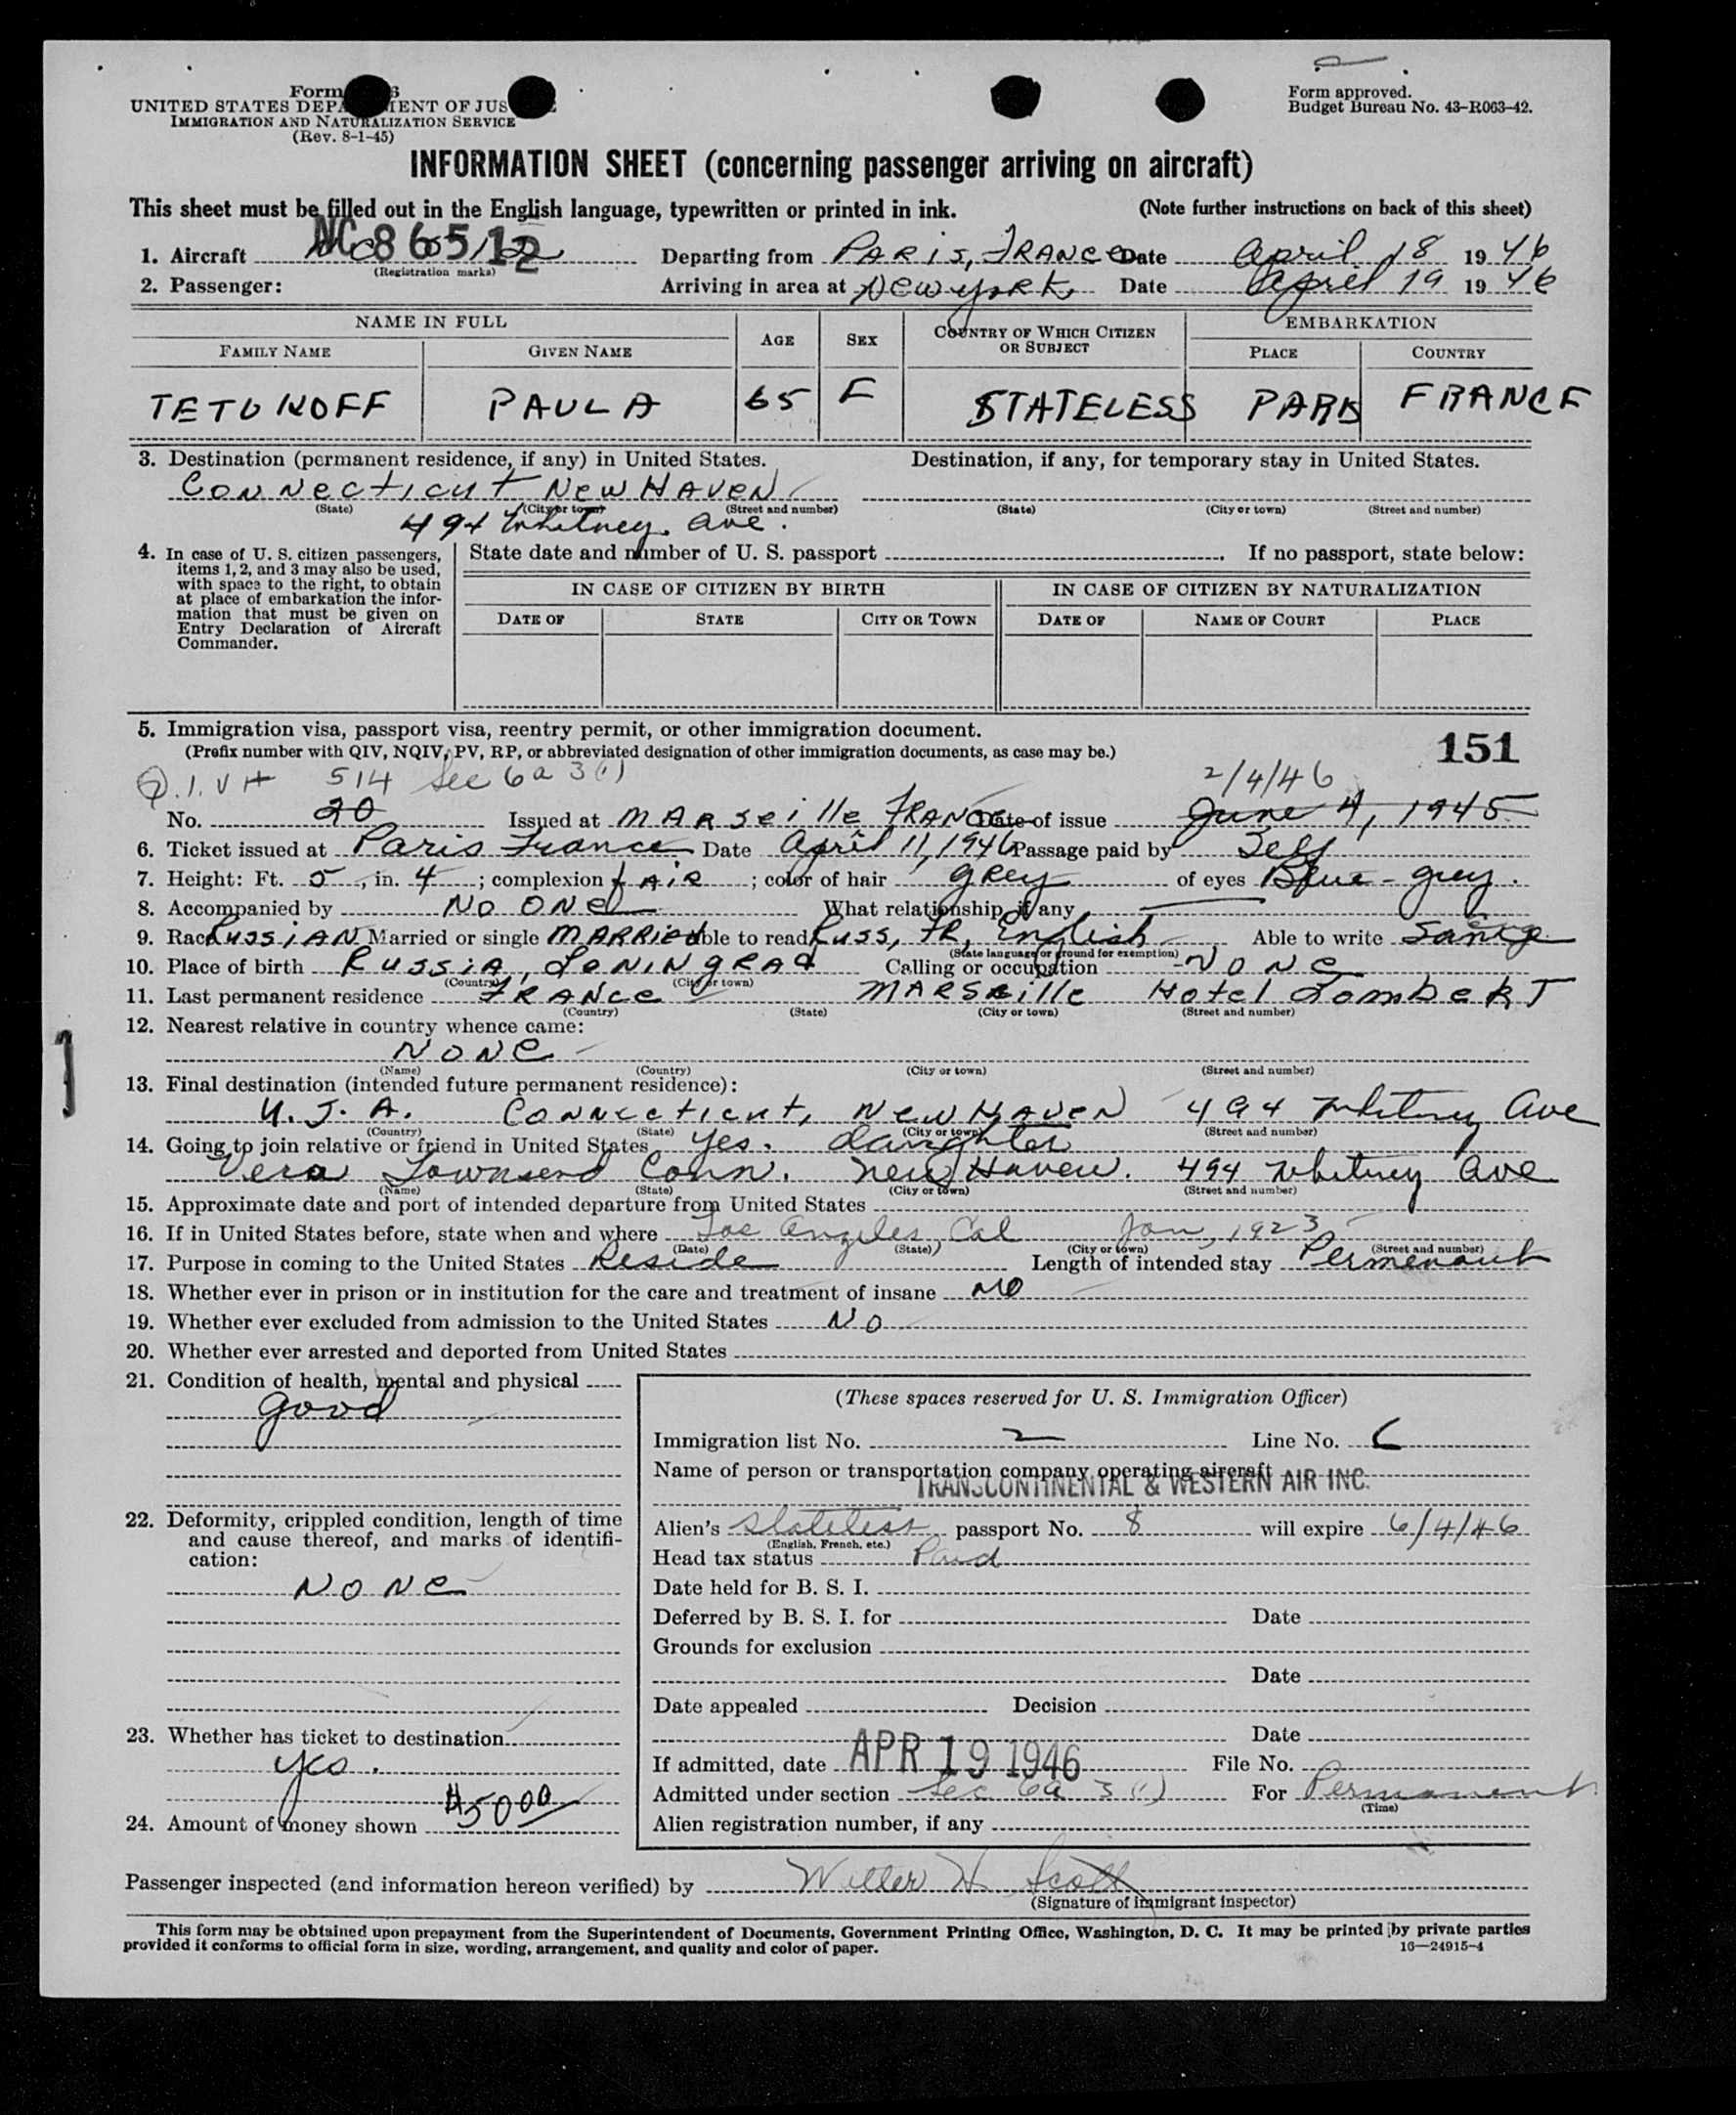 Form
UNITED STATES DEPA MENT OF JUS
IMMIGRATION AND NATURALIZATION SERVICE
(Rev. 8-1-45)
Form approved.
Budget Bureau No. 43-R063-42.
INFORMATION SHEET (concerning passenger arriving on aircraft)
This sheet must be filled out in the English language, typewritten or printed in ink. (Note further instructions on back of this sheet)
1. Aircraft NC86512 Departing from PARIS, FRANCE Date April 18 1946
(Registration marks)
2. Passenger: Arriving in area at New York Date April 19 1946
NAME IN FULL AGE SEX COUNTRY OF WHICH CITIZEN OR SUBJECT EMBARKATION
FAMILY NAME GIVEN NAME PLACE COUNTRY
TETUKOFF PAULA 65 F STATELESS PARIS FRANCE
3. Destination (permanent residence, if any) in United States. Destination, if any, for temporary stay in United States.
Connecticut New Haven
(State) (City or town) (Street and number) (State) (City or town) (Street and number)
494 Whitney Ave.
4. In case of U. S. citizen passengers, items 1, 2, and 3 may also be used, with space to the right, to obtain at place of embarkation the information that must be given on Entry Declaration of Aircraft Commander.
State date and number of U. S. passport . If no passport, state below:
IN CASE OF CITIZEN BY BIRTH IN CASE OF CITIZEN BY NATURALIZATION
DATE OF STATE CITY OR TOWN DATE OF NAME OF COURT PLACE
5. Immigration visa, passport visa, reentry permit, or other immigration document.
(Prefix number with QIV, NQIV, PV, RP, or abbreviated designation of other immigration documents, as case may be.) 151
Q.I.V # 514 Sec 6a 3(1) 2/4/46
No. 20 Issued at Marseille France Date of issue June 4, 1945
6. Ticket issued at Paris France Date April 11, 1946 Passage paid by Self
7. Height: Ft. 5, in. 4; complexion fAiR; color of hair grey of eyes Blue-grey.
8. Accompanied by No one What relationship, if any
9. Race Russian Married or single Married Able to read Russ, Fr, English, Able to write Same
(State language or ground for exemption)
10. Place of birth Russia, Leningrad Calling or occupation None
(Country) (City or town)
11. Last permanent residence France Marseille Hotel Lambert
(Country) (State) (City or town) (Street and number)
12. Nearest relative in country whence came:
None
(Name) (Country) (City or town) (Street and number)
13. Final destination (intended future permanent residence):
U.S.A. Connecticut, New Haven 494 Whitney Ave
(Country) (State) (City or town) (Street and number)
14. Going to join relative or friend in United States Yes. daughter
Vera Townsend Conn. New Haven. 494 Whitney Ave
(Name) (State) (City or town) (Street and number)
15. Approximate date and port of intended departure from United States
16. If in United States before, state when and where Los Angeles, Cal Jan, 1923
(Date) (State) (City or town) (Street and number)
17. Purpose in coming to the United States Reside Length of intended stay Permenant
18. Whether ever in prison or in institution for the care and treatment of insane No
19. Whether ever excluded from admission to the United States No
20. Whether ever arrested and deported from United States
21. Condition of health, mental and physical
good
22. Deformity, crippled condition, length of time and cause thereof, and marks of identification:
None
23. Whether has ticket to destination
yes.
24. Amount of money shown $50 00
(These spaces reserved for U. S. Immigration Officer)
Immigration list No. 2 Line No. 6
Name of person or transportation company operating aircraft
TRANSCONTINENTAL & WESTERN AIR INC.
Alien's Stateless passport No. 8 will expire 6/4/46
(English, French, etc.)
Head tax status Paid
Date held for B. S. I.
Deferred by B. S. I. for Date
Grounds for exclusion
Date
Date appealed Decision
Date
If admitted, date APR 19 1946 File No.
Admitted under section Sec 6a 3(1) For Permanent
(Time)
Alien registration number, if any
Passenger inspected (and information hereon verified) by Scott
(Signature of immigrant inspector)
This form may be obtained upon prepayment from the Superintendent of Documents, Government Printing Office, Washington, D. C. It may be printed by private parties
provided it conforms to official form in size, wording, arrangement, and quality and color of paper. 16—24915-4